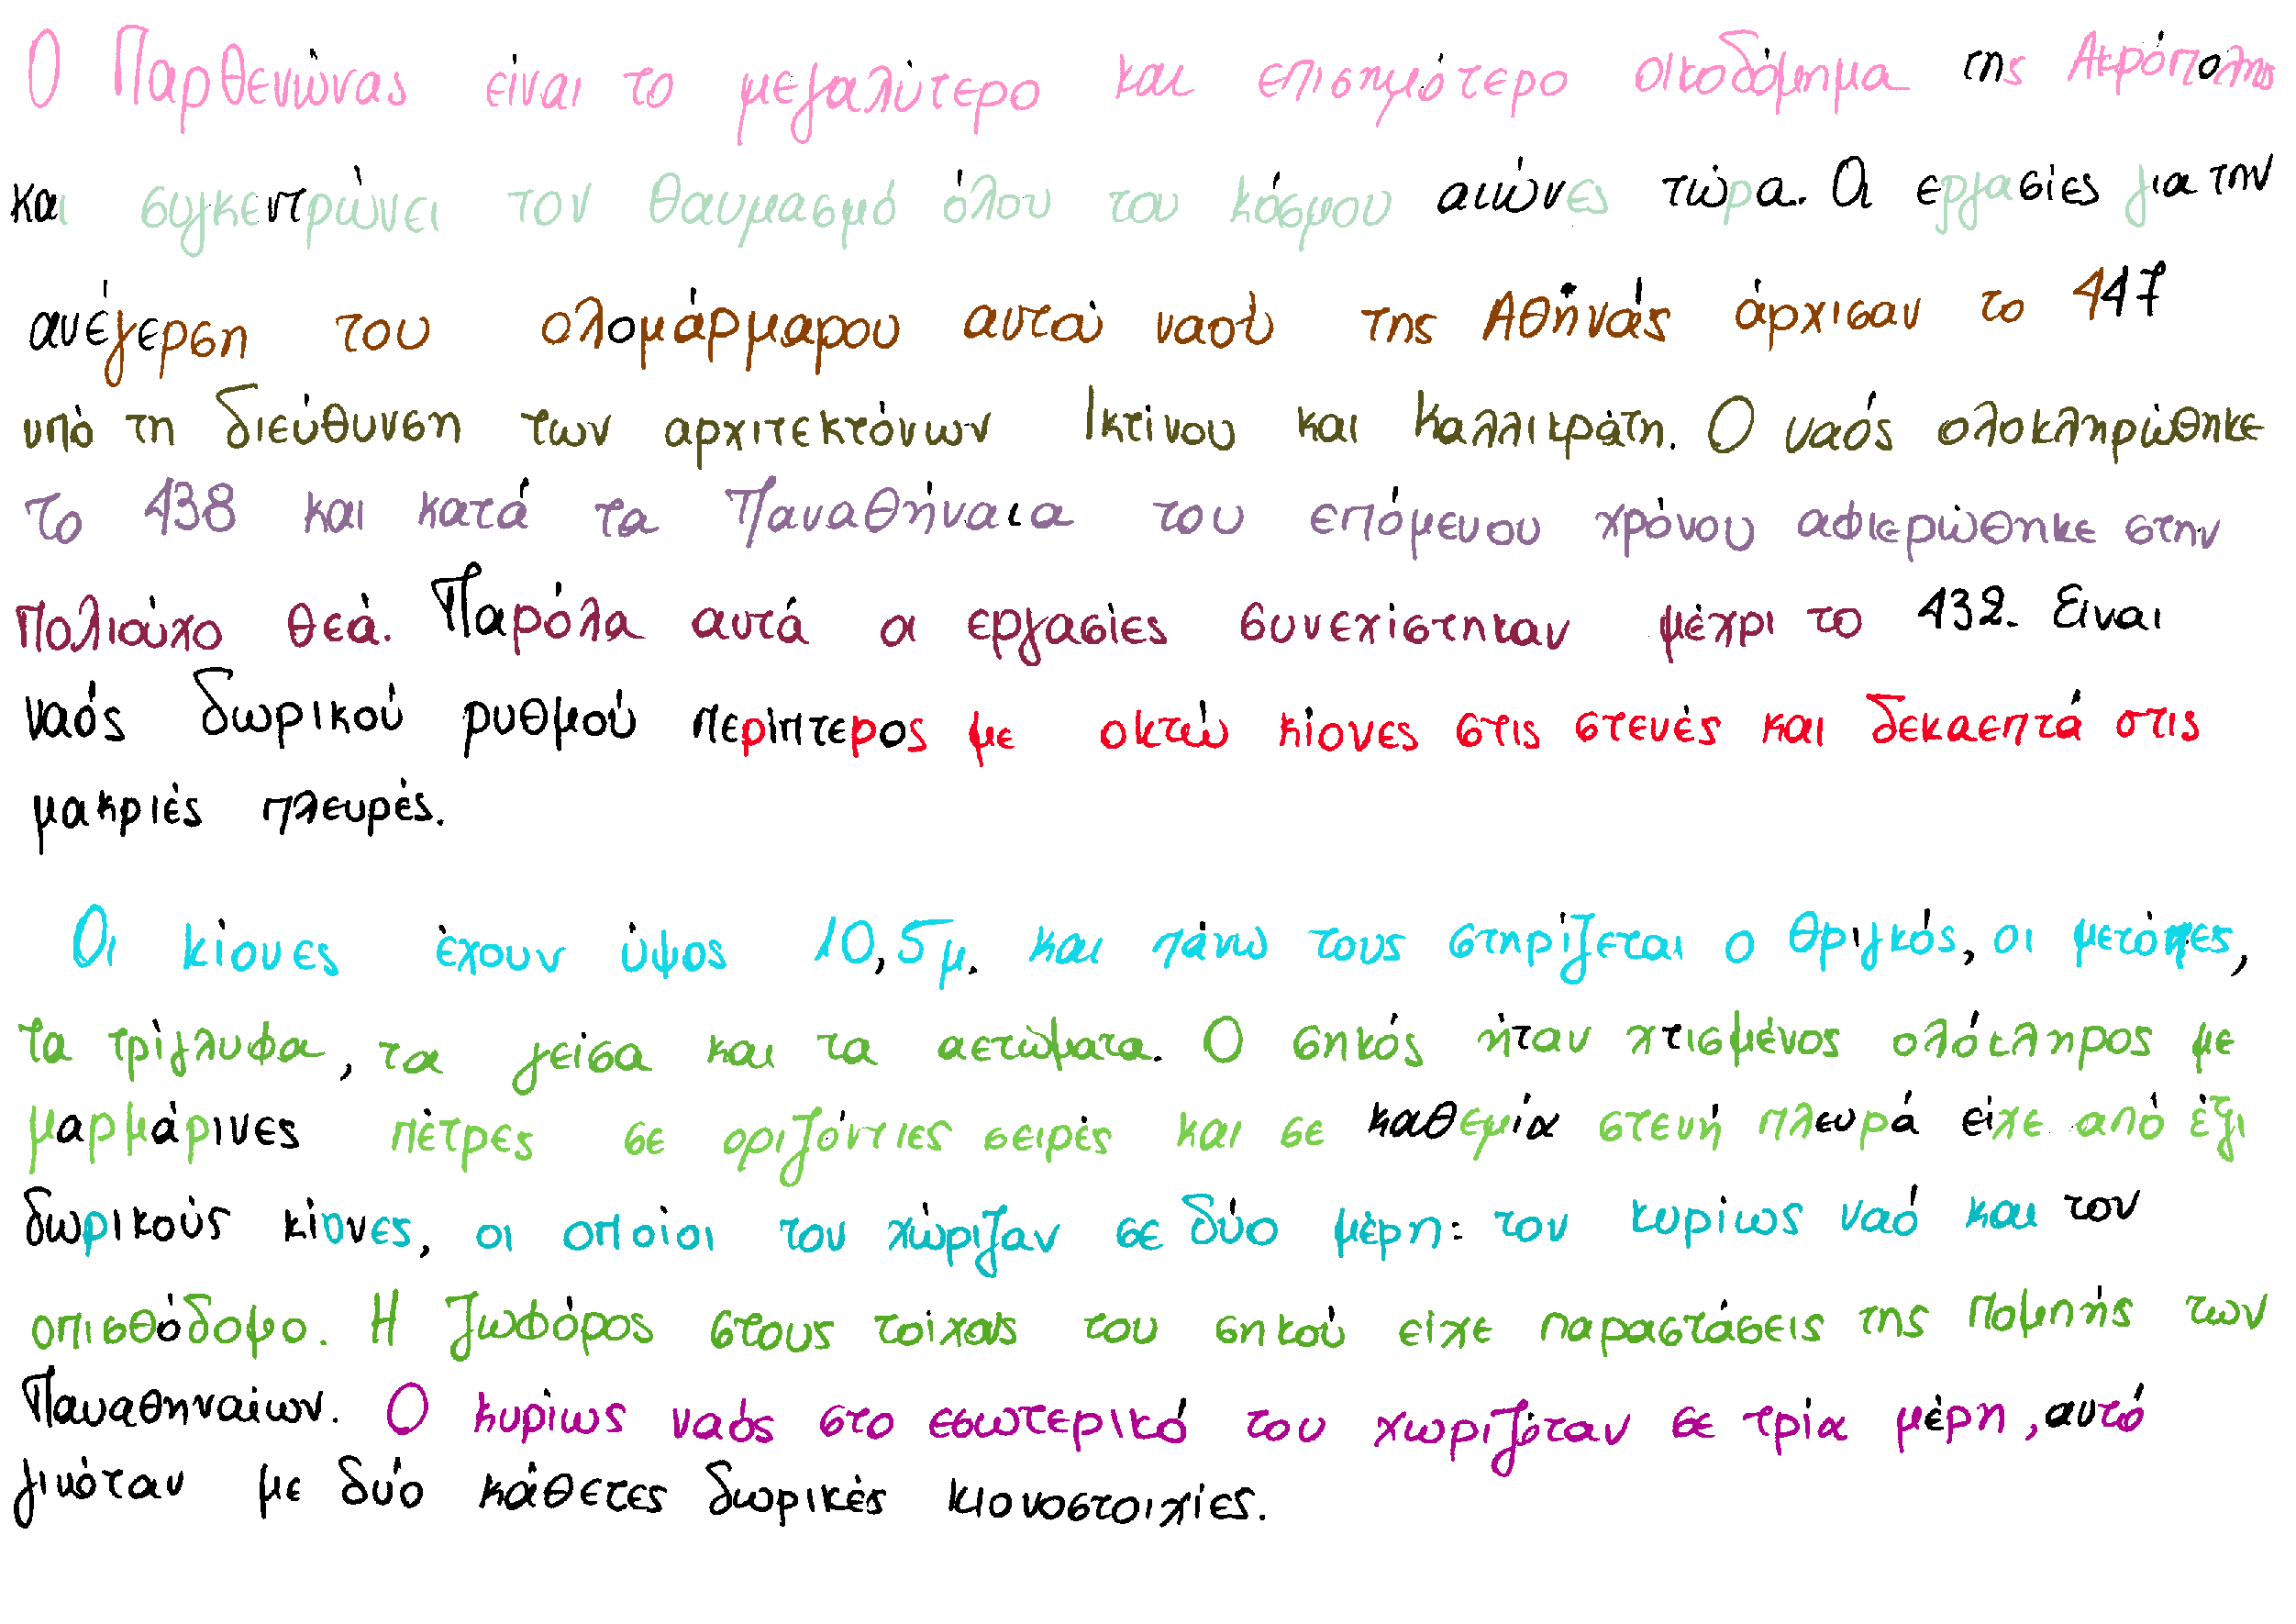 Ο Παρθενώνας είναι το μεγαλύτερο και επισημότερο οικοδόμημα της Ακρόπολης
και συγκεντρώνει τον θαυμασμό όλου του κόσμου αιώνες τώρα. Οι εργασίες για την
ανέγερση του ολομάρμαρου αυτού ναού της Αθηνάς άρχισαν το 447
υπό τη διεύθυνση των αρχιτεκτόνων Ικτίνου και Καλλικράτη. Ο ναός ολοκληρώθηκε
το 438 και κατά τα Παναθήναια του επόμενου χρόνου αφιερώθηκε στην
πολιούχο θεά. Παρόλα αυτά οι εργασίες συνεχίστηκαν μέχρι το 432. Είναι
ναός δωρικού ρυθμού περίπτερος με οκτώ κίονες στις στενές και δεκαεπτά στις
μακριές πλευρές.
Οι κίονες έχουν ύψος 10,5μ. και πάνω τους στηρίζεται ο θριγκός, οι μετόπες,
τα τρίγλυφα, τα γείσα και τα αετώματα. Ο σηκός ήταν χτισμένος ολόκληρος με
μαρμάρινες πέτρες σε οριζόντιες σειρές και σε καθεμία στενή πλευρά είχε από έξι
δωρικούς κίονες, οι οποίοι τον χώριζαν σε δύο μέρη: τον κυρίως ναό και τον
οπισθόδομο. Η ζωφόρος στους τοίχους του σηκού είχε παραστάσεις της πομπής των
Παναθηναίων. Ο κυρίως ναός στο εσωτερικό του χωριζόταν σε τρία μέρη, αυτό
γινόταν με δύο κάθετες δωρικές κιονοστοιχίες.